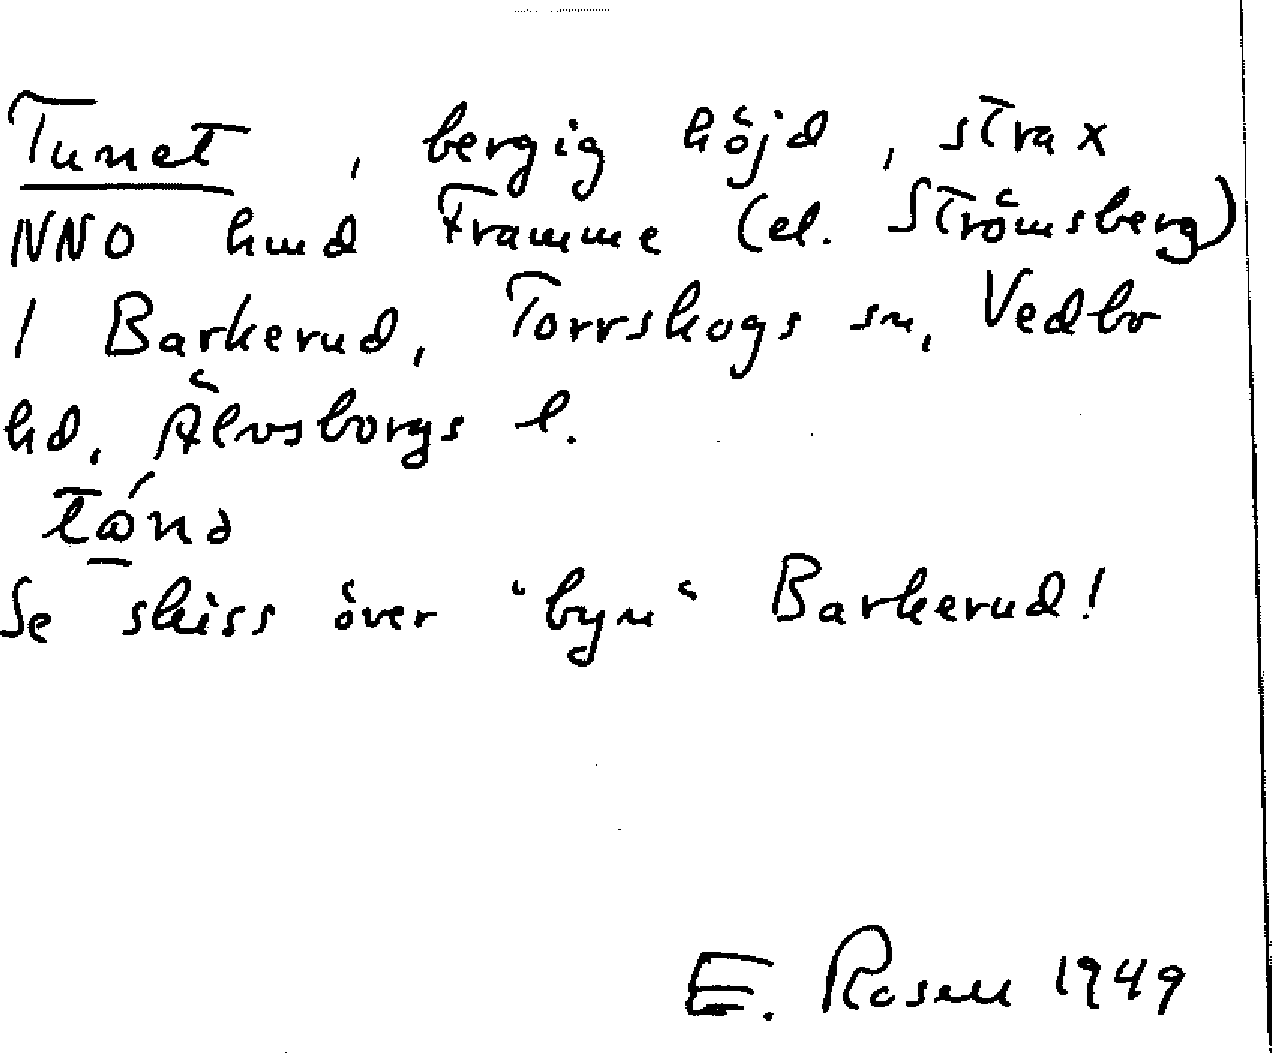 Tunet, bergig höjd, strax
NNO hmd Framme (el. Strömsberg)
I Barkerud, Torrskogs sn, Vedbo
hd, Älvsborgs l.
Se skiss över "byn" Barkerud!
E. Rosell 1949